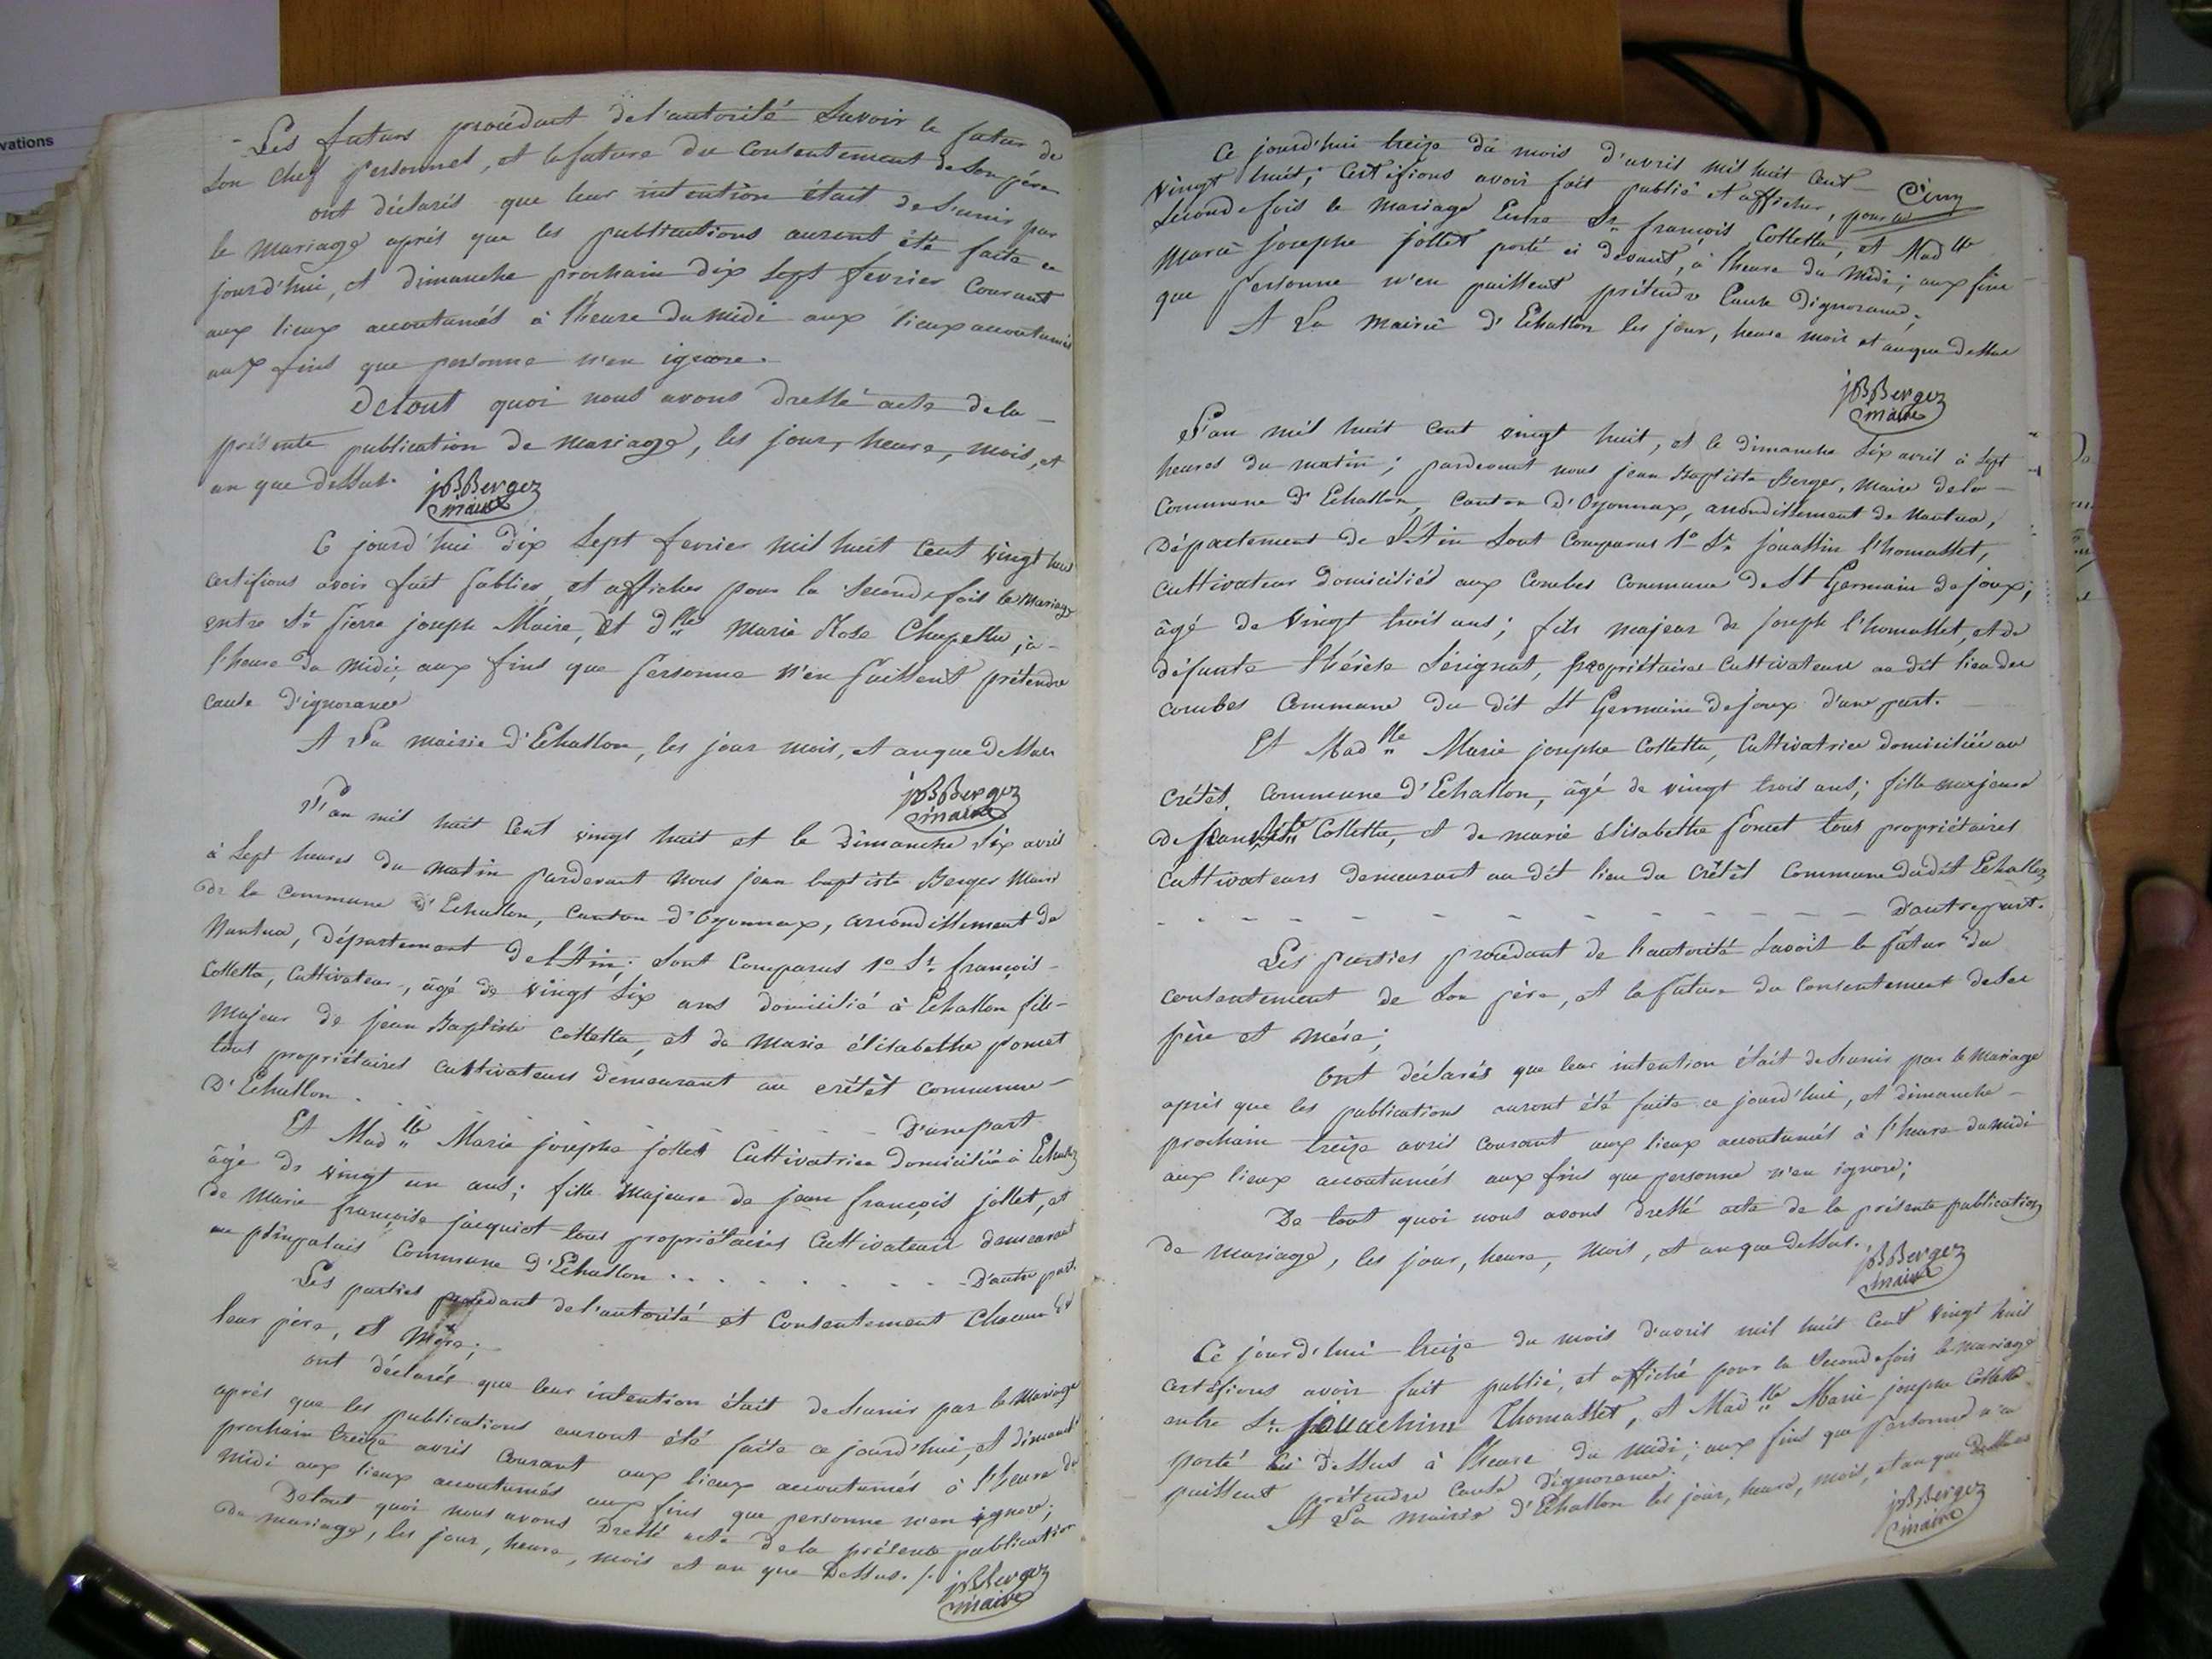 vations
- Les futurs procédant de l'autorité Savoir le futur de
Son chef personnel, et la future du Consentement de Son père
ont déclarés que leur intention était de S'unir par
le Mariage après que les publications auront été faite ce
jourd'hui, et dimanche prochain dix Sept fevrier Courant
aux lieux accoutumés à l'heure du Midi aux lieux accoutumés
aux fins que personne n'en ignore.
De tout quoi nous avons Dressé acte de la -
présente publication de Mariage, les jour, heure, Mois, et
an que dessus. jBBerger
maire
Ce jourd'hui dix Sept fevrier Mil huit Cent Vingt huit
certifions avoir fait publier, et afficher pour la Seconde fois le Mariage
entre Sr. pierre joseph Maire, Et dlle Marie Rose Chapellu, à -
l'heure du Midi, aux fins que personne N'en puissent prétendre
Cause D'ignorance
A La Mairie D'Echallon, les jour mois, et an que Dessus
jBBerger
maire
L'an mil huit Cent vingt huit et le Dimanche Six avril
à Sept heures du Matin pardevant Nous jean baptiste Berger Maire
de la Commune d'Echallon, Canton d'Oyonnax, arrondissement de
Nantua, Département De L'Ain; Sont Comparus 1º Sr. françois -
Colletta, Cultivateur, âgé de Vingt Six ans domicilié à Echallon fils -
Majeur de jean Baptiste Colletta, et de Marie élisabethe poncet
tous propriétaires Cultivateurs demeurant au crétêt commune -
D'Echallon . . . - - - - - D'une part.
Et Madlle Marie josephe jollet Cultivatrice Domiciliée à Echallon
âgé de Vingt un ans; fille Majeure de jean françois jollet, et
de Marie françoise jacquiot tous propriétaires Cultivateurs demeurant
au Commune d'Echallon . . . . . . . - - - D'autre part.
Les parties procédant de l'autorité et Consentement Chacun de
leur père, et Mère;
ont déclarés que leur intention était de S'unir par le Mariage
après que les publications auront été faite ce jourd'hui, et dimanche
prochain treize avril Courant aux lieux accoutumés à l'heure du
Midi aux lieux accoutumés aux fins que personne n'en ignore;
De tout quoi nous avons Dressé acte de la présente publication
de Mariage, les jour, heure, mois et an que Dessus. /. jBBerger
maire
Ce jourd'hui treize du mois d'avril mil huit Cent -
Vingt huit; Certifions avoir fait publié et afficher, pour la
Cinq
Seconde fois le Mariage Entre Sr. françois Colletta, et Madlle
Marie josephe jollet porté ci devant, à l'heure du Midi; aux fins
que personne n'en puissent prétendre Cause D'ignorance;
A La Mairie d'Echallon les jour, heure mois et an que Dessus
jBBerger
maire
L'an mil huit Cent vingt huit, et le dimanche Six avril à Sept
heures du matin; pardevant nous jean Baptiste Berger, Maire de la -
Commune d'Echallon, Canton d'Oyonnax, arrondissement de Nantua,
Département de L'Ain Sont Comparus 1º Sr. jouassin l'homasset,
Cultivateur domiciliés aux Combes Commune de St Germain de joux;
âgé de Vingt trois ans; fils majeur de joseph l'homasset, et de
défunte thérèse Sérignat, propriétaires Cultivateurs au dit lieu des
combes Commune du dit St Germain de joux d'une part.
Et Madlle Marie josephe Colletta, Cultivatrice domiciliée au
Crétêt, Commune d'Echallon, âgé de vingt trois ans; fille majeure
de jean Bste Colletta, et de marie élisabethe poncet tous propriétaires
Cultivateurs demeurant au dit lieu du Crétêt Commune dudit Echallon
- - - - - - - - - - - - D'autre part.
Les parties procédant de l'autorité Savoir le futur du
consentement de Son père, et la future du Consentement de Ses
père et Mère;
Ont déclarés que leur intention était de S'unir par le Mariage
après que les publications auront été faite ce jourd'hui, et dimanche -
prochain treize avril courant aux lieux accoutumés à l'heure du midi
aux lieux accoutumés aux fins que personne n'en ignore;
De tout quoi nous avons dressé acte de la présente publication
de Mariage, les jour, heure, Mois, et an que dessus.
jBBerger
maire
Ce jourd'hui treize du mois d'avril mil huit Cent vingt huit
certifions avoir fait publié, et affiché pour la Seconde fois le Mariage
entre Sr. jouachim Thomasset, et Madlle Marie josephe Colletta
porté ci Dessus à l'heure du midi; aux fins que personne n'en
puissent prétendre Cause d'ignorance.
A La Mairie d'Echallon les jour, heure, mois, et an que Dessus
jBBerger
maire